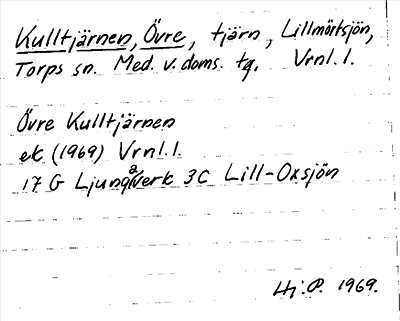 Kulltjärnen, Övre, tjärn, Lillmörtsjön,
Torps sn. Med. v. doms. tg. Vrnl. l.
Övre Kulltjärnen
ek (1969) Vrnl. l.
17 G Ljungaverk 3C Lill-Oxsjön
Hj. P. 1969.